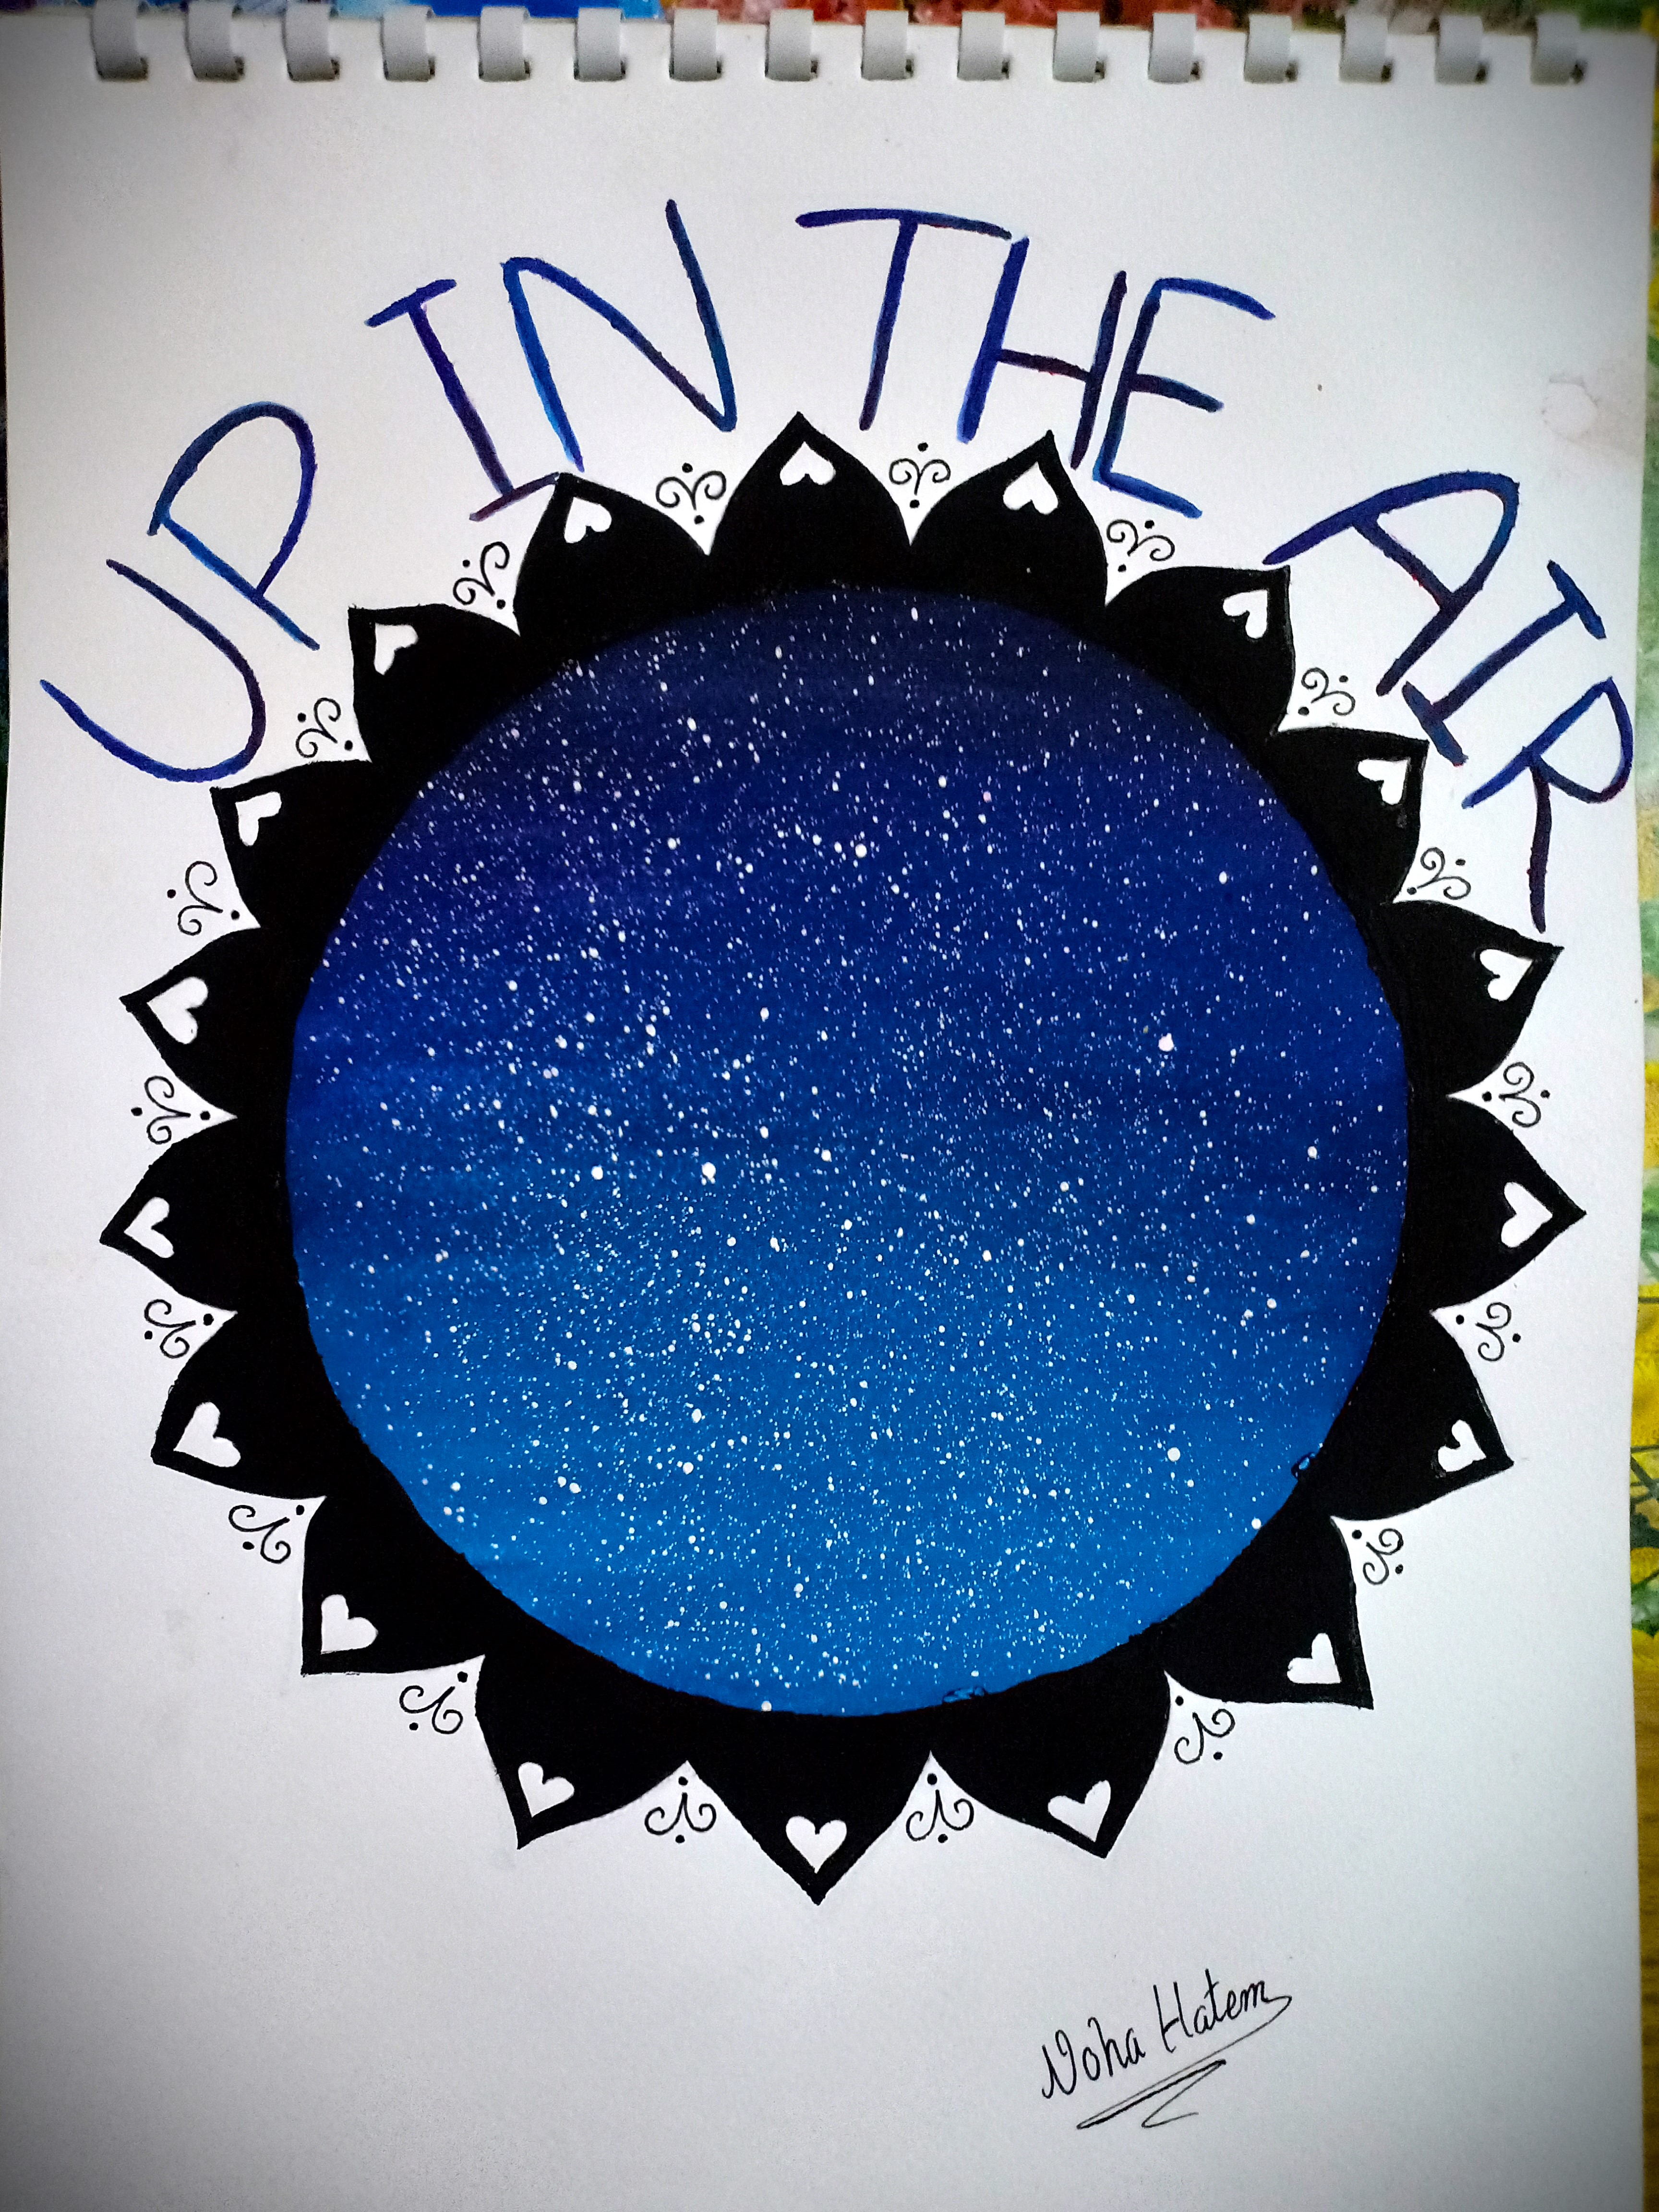 UP IN THE AIR
Noha Hatem